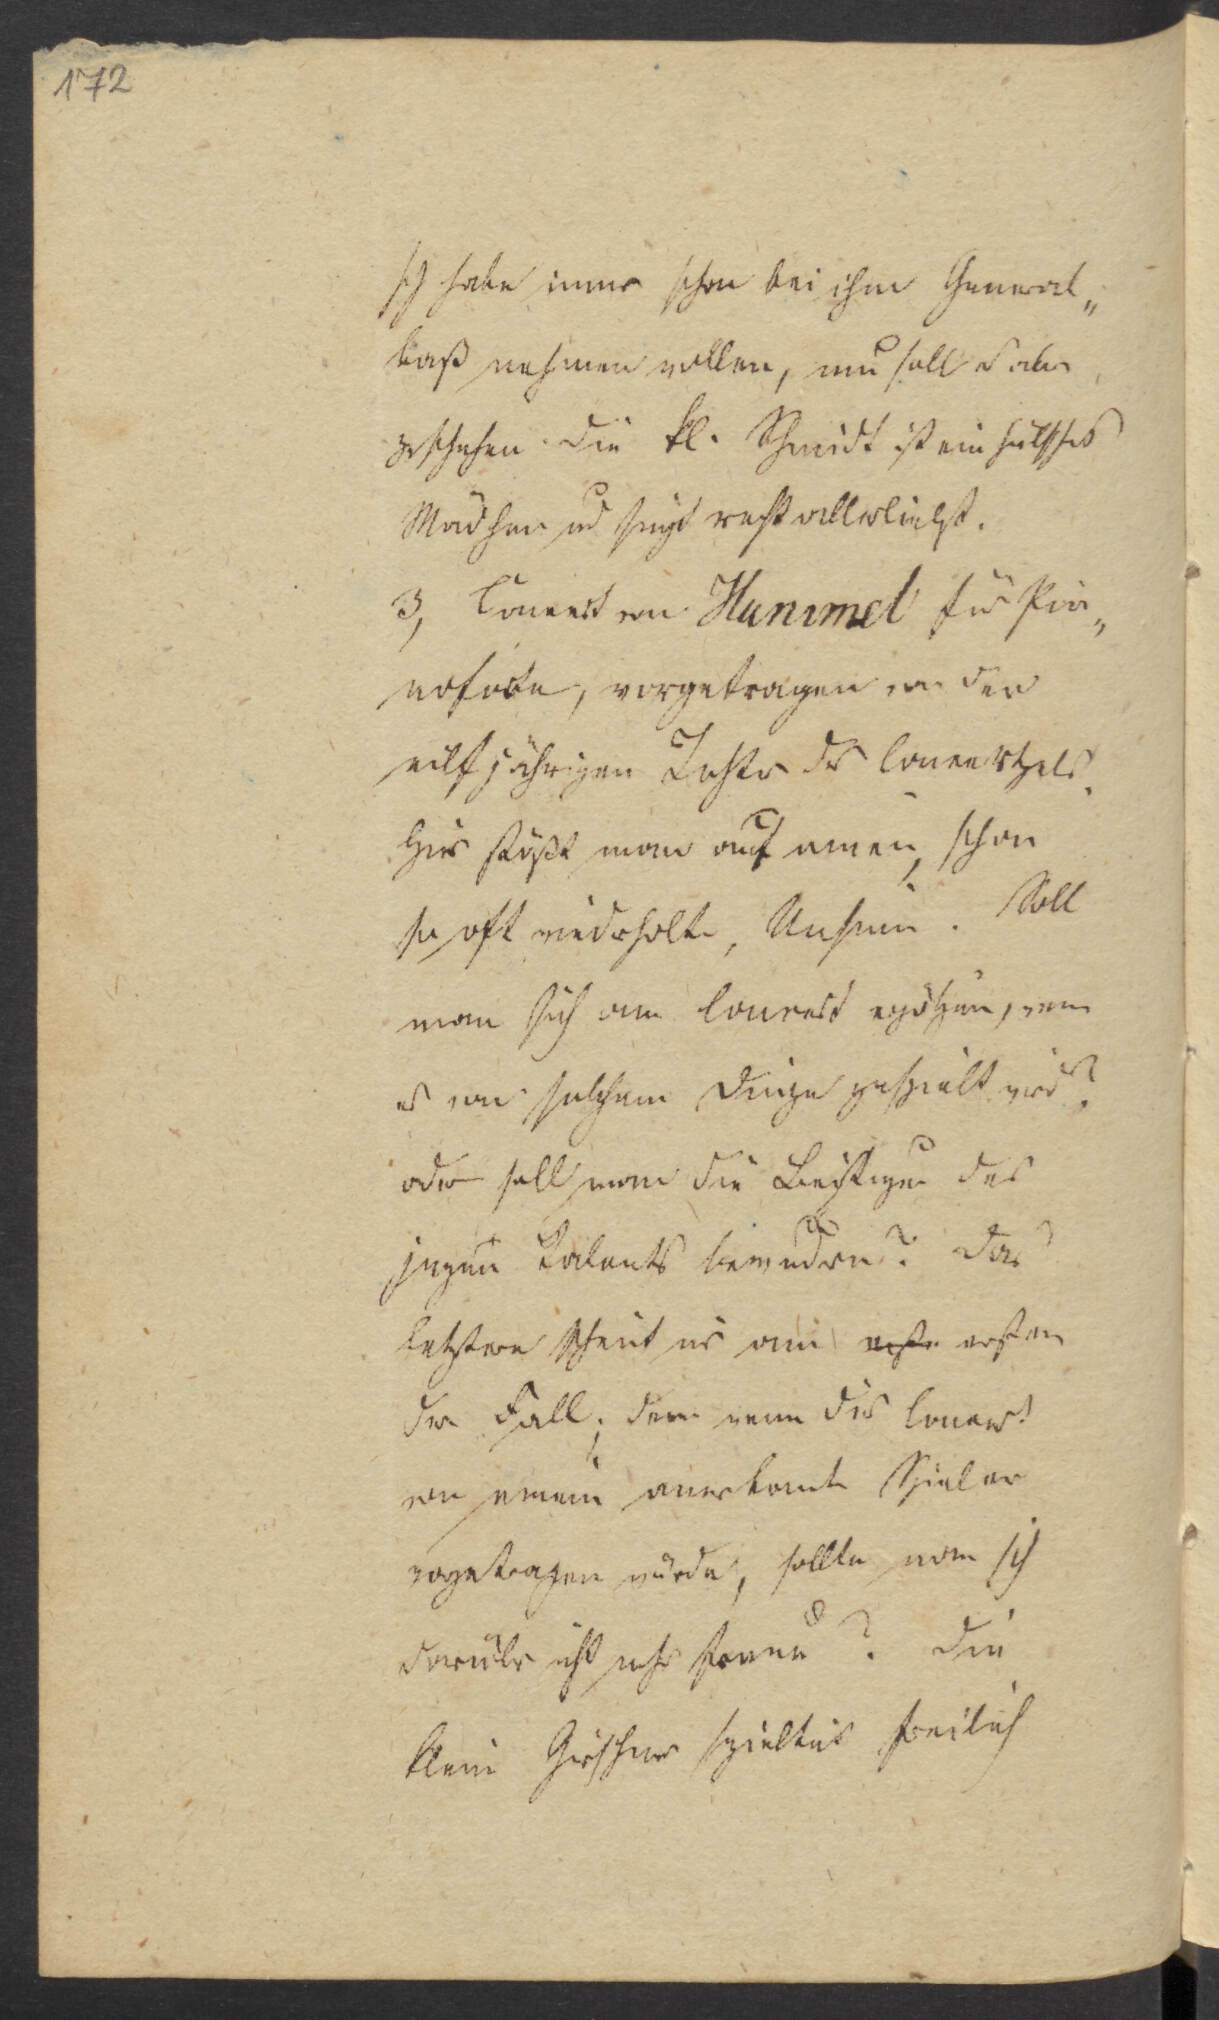 172
ich habe immer schon bei ihm General„
baß nehmen wollen, nun soll es aber
geschehen. Die kl. Schmidt ist ein hübsches
Mädchen und singt recht allerliebst.
3, Concert von Hummel für Pia„
noforte, vorgetragen von der
eilfjährigen Tochter des Concertgebers.
Hier stößt man auf einen, schon
so oft wiederholten, Unsinn. Soll
man sich am Concert ergötzen, wenn
es von solchem Dinge gespielt wird?
oder soll man die Leistungen des
jungen Talents bewundern? Das
letztere scheint mir am erste ersten
der Fall; denn wenn das Concert
von einem anerkannten Spieler
vorgetragen würde, sollte man sich
darüber nicht mehr freuen? Die
kleine Girschner spielte es freilich